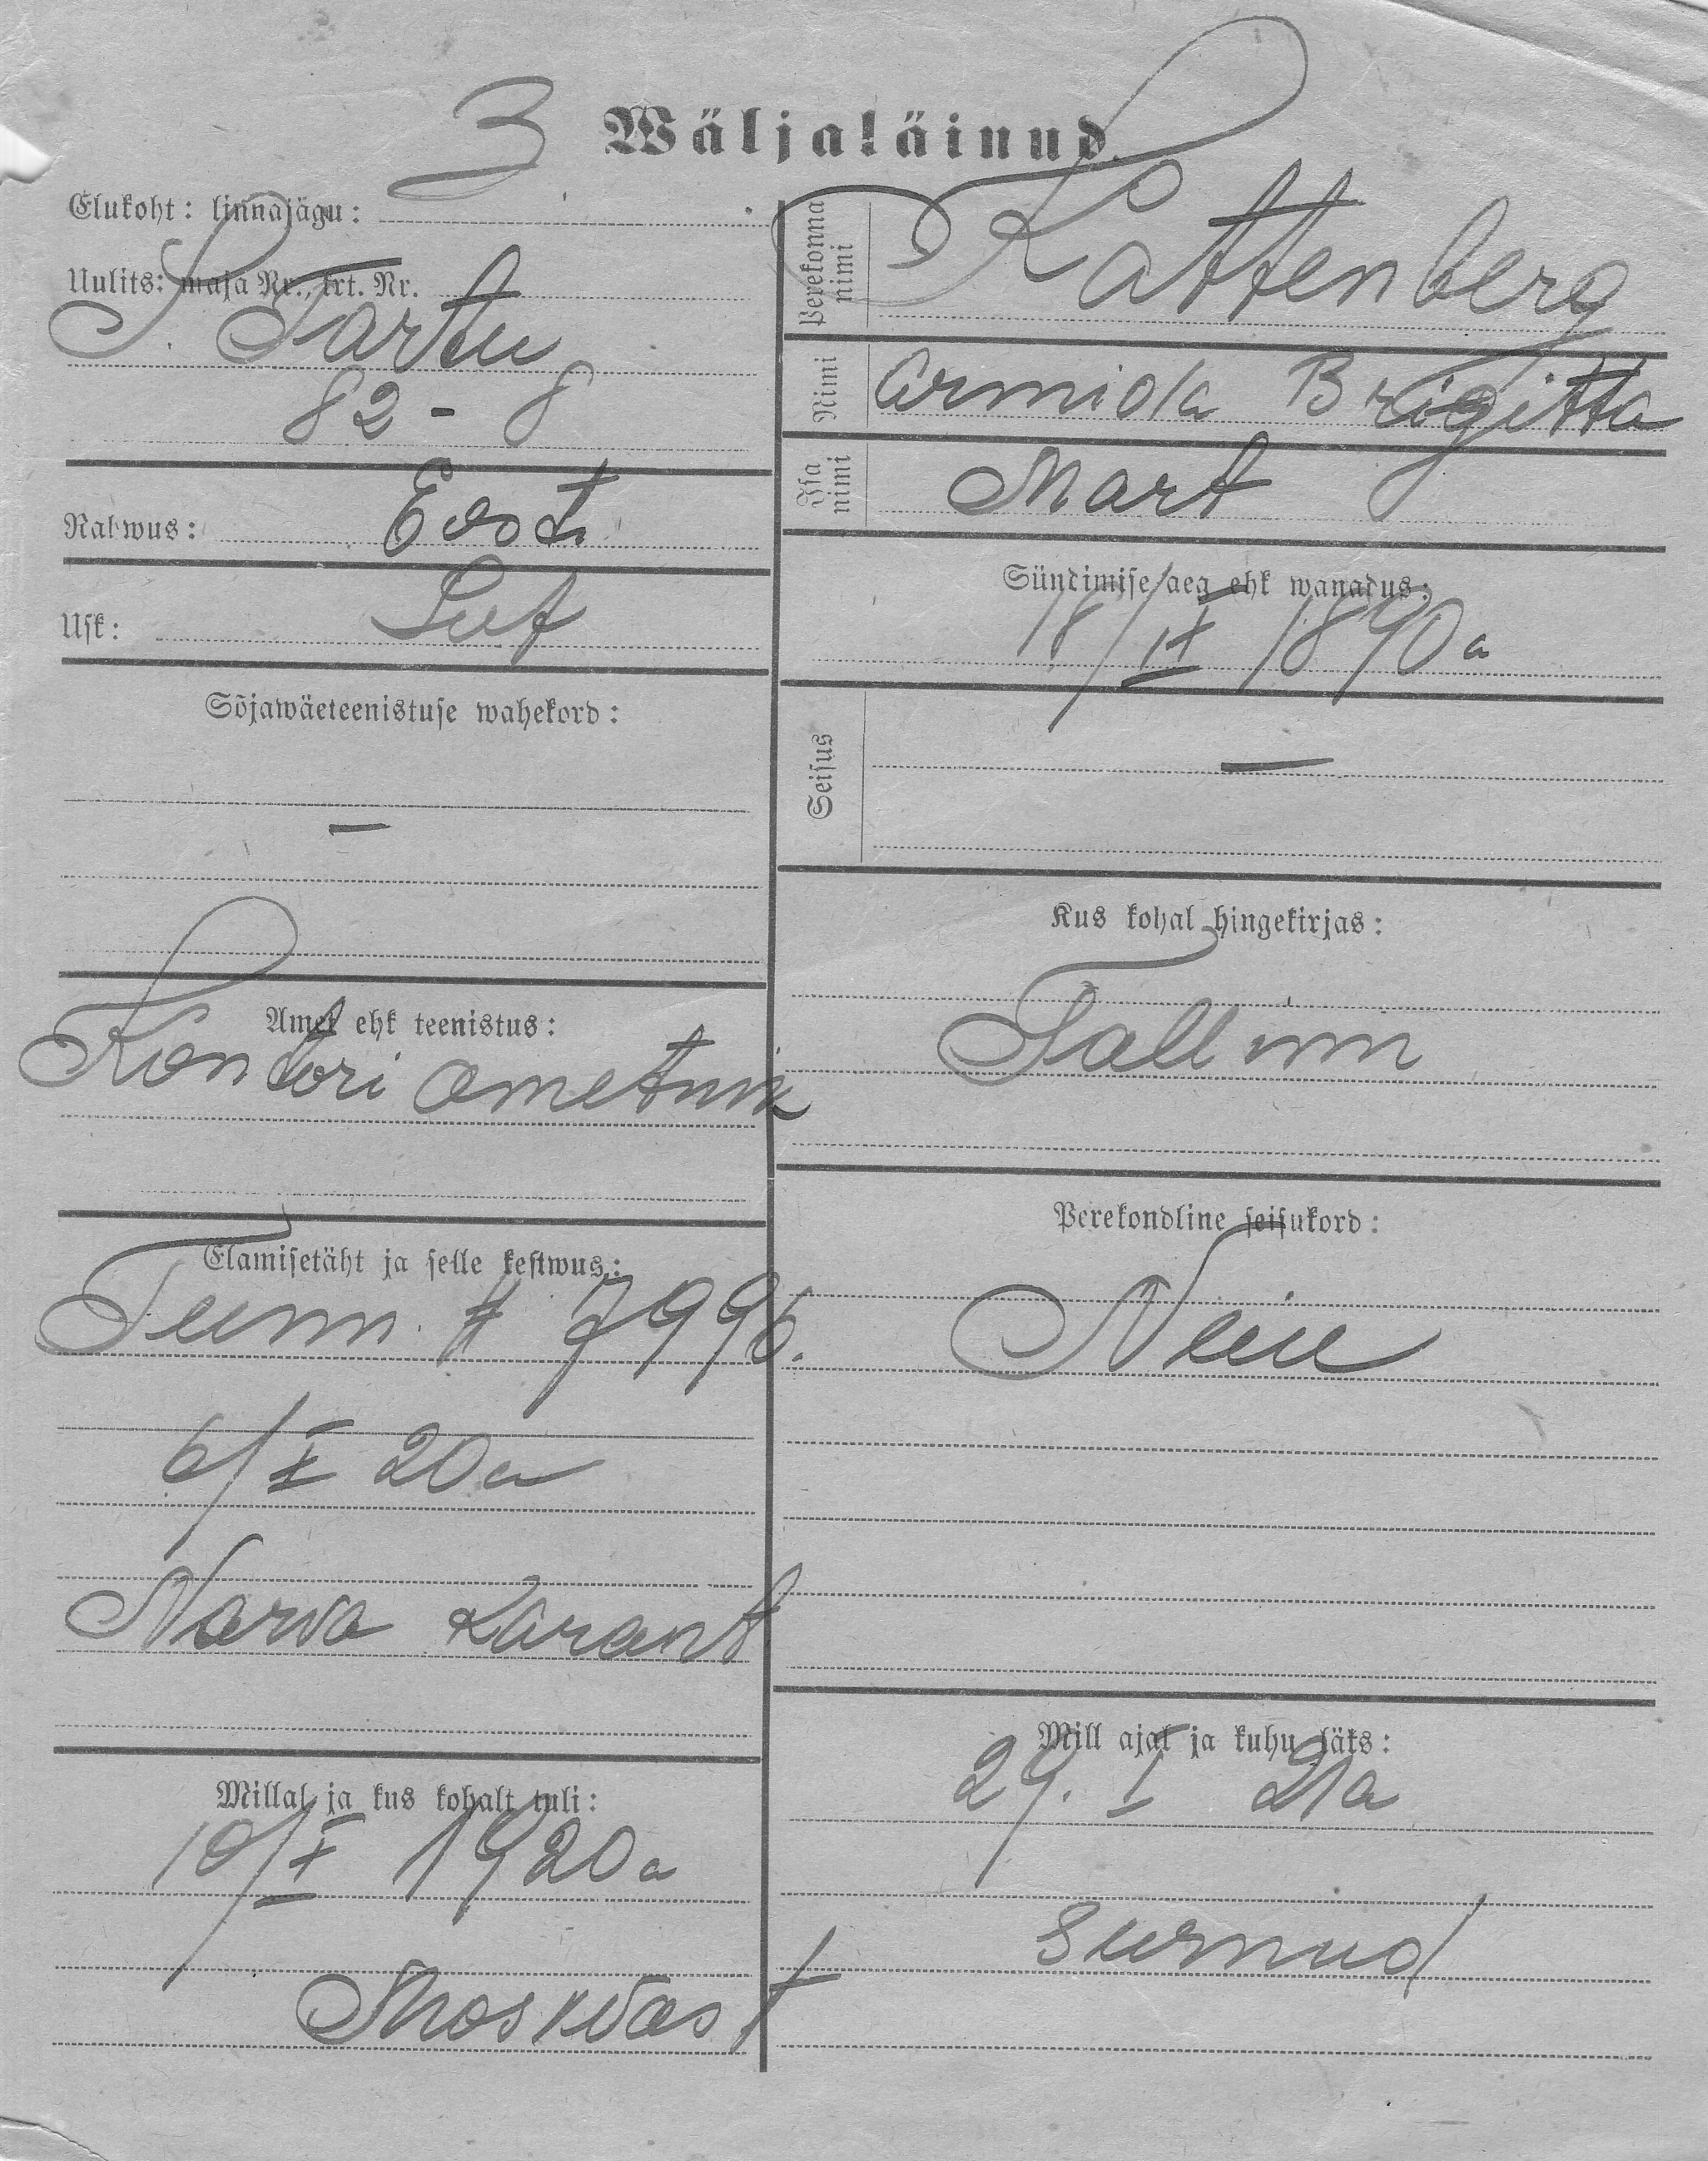 3
Wäljaläinud.
Elukoht: linnajägu:
Uulits: maja Nr., krt. Nr.
S. Tartu
82 - 8
Rahwus: Eesti
Usk: Lut
Sõjawäeteenistuse wahekord:
—
Amet ehk teenistus:
Kontori ametnik
Elamisetäht ja selle kestwus:
Tunn. # 7996.
6/X 20 a
Narva Karant
Millal ja kus kohalt tuli:
10/X 1920 a
Moskvast
Perekonna nimi Kattenberg
Nimi Armida Brigitta
Isa nimi Mart
Sündimise aeg ehk wanadus:
18/IX 1890 a
Seisus —
Kus kohal hingekirjas:
Tallinn
Perekondline seisukord:
Neiu
Mill ajal ja kuhu läks:
29. I 21 a
surnud